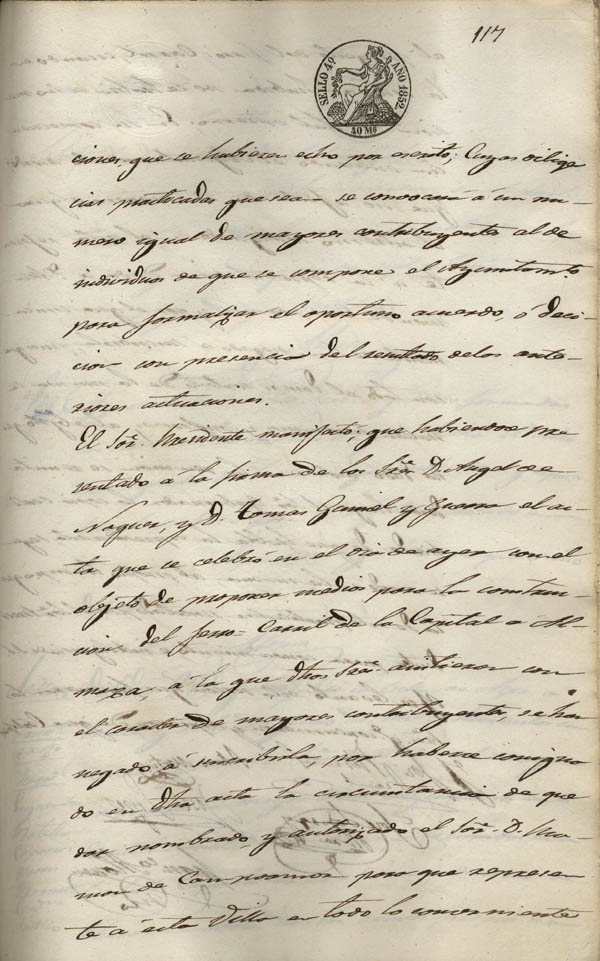 117
SELLO 4º AÑO 1852.
40 Ms
ciones, que se hubieren echo por escrito; Cuyas dilige
cias practicadas que sean se convocará á un nu-
mero igual de mayores contribuyentes al de
individuos de que se compone el Ayuntamto
para formalizar el oportuno acuerdo, ó deci-
cion con presencia del resultado de los ante-
riores actuaciones.
El Sor. Presidente manifestó; que habiendose pre
sentado á la firma de los Sres. D. Angel de
Noguer, y D. Tomas Gamiel y Guerra el ac-
ta que se celebró en el dia de ayer con el
objeto de proponer medios para la construc-
cion del ferro-Carril de la Capital a Al-
mansa, á la que dhos Sres. asistieron con
el caracter de mayores contribuyentes, se han
negado á suscribirla, por haberse consigna
do en dha acta la circunstancia de que
dar nombrado y autorizado el Sor. D. Ra-
mon de Campoamor para que represen
te á esta Villa en todo lo concerniente